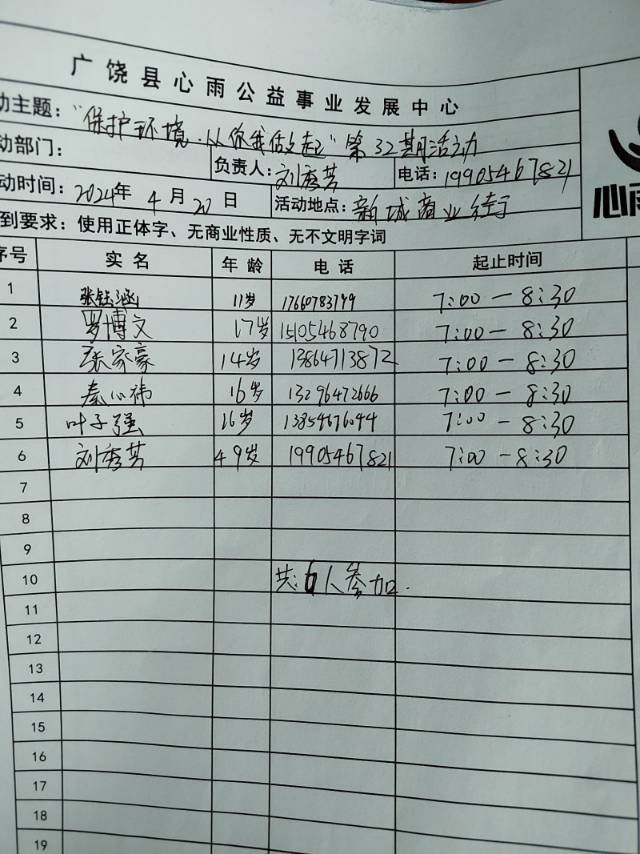 广饶县心雨公益事业发展中心
动主题：“保护环境·从你我做起”第32期活动
动部门： 负责人：刘秀芳 电话：19905467821
动时间：2024年4月20日 活动地点：新城商业街
到要求：使用正体字、无商业性质、无不文明字词
序号 实名 年龄 电话 起止时间
1 张钰涵 11岁 17660783799 7:00－8:30
2 罗博文 17岁 15105468790 7:00－8:30
3 张家豪 14岁 13864713872 7:00－8:30
4 秦心祎 16岁 13296472666 7:00－8:30
5 叶子强 16岁 13854676044 7:00－8:30
6 刘秀芳 49岁 19905467821 7:00－8:30
7
8
9
10 共：6人参加.
11
12
13
14
15
16
17
18
19
心